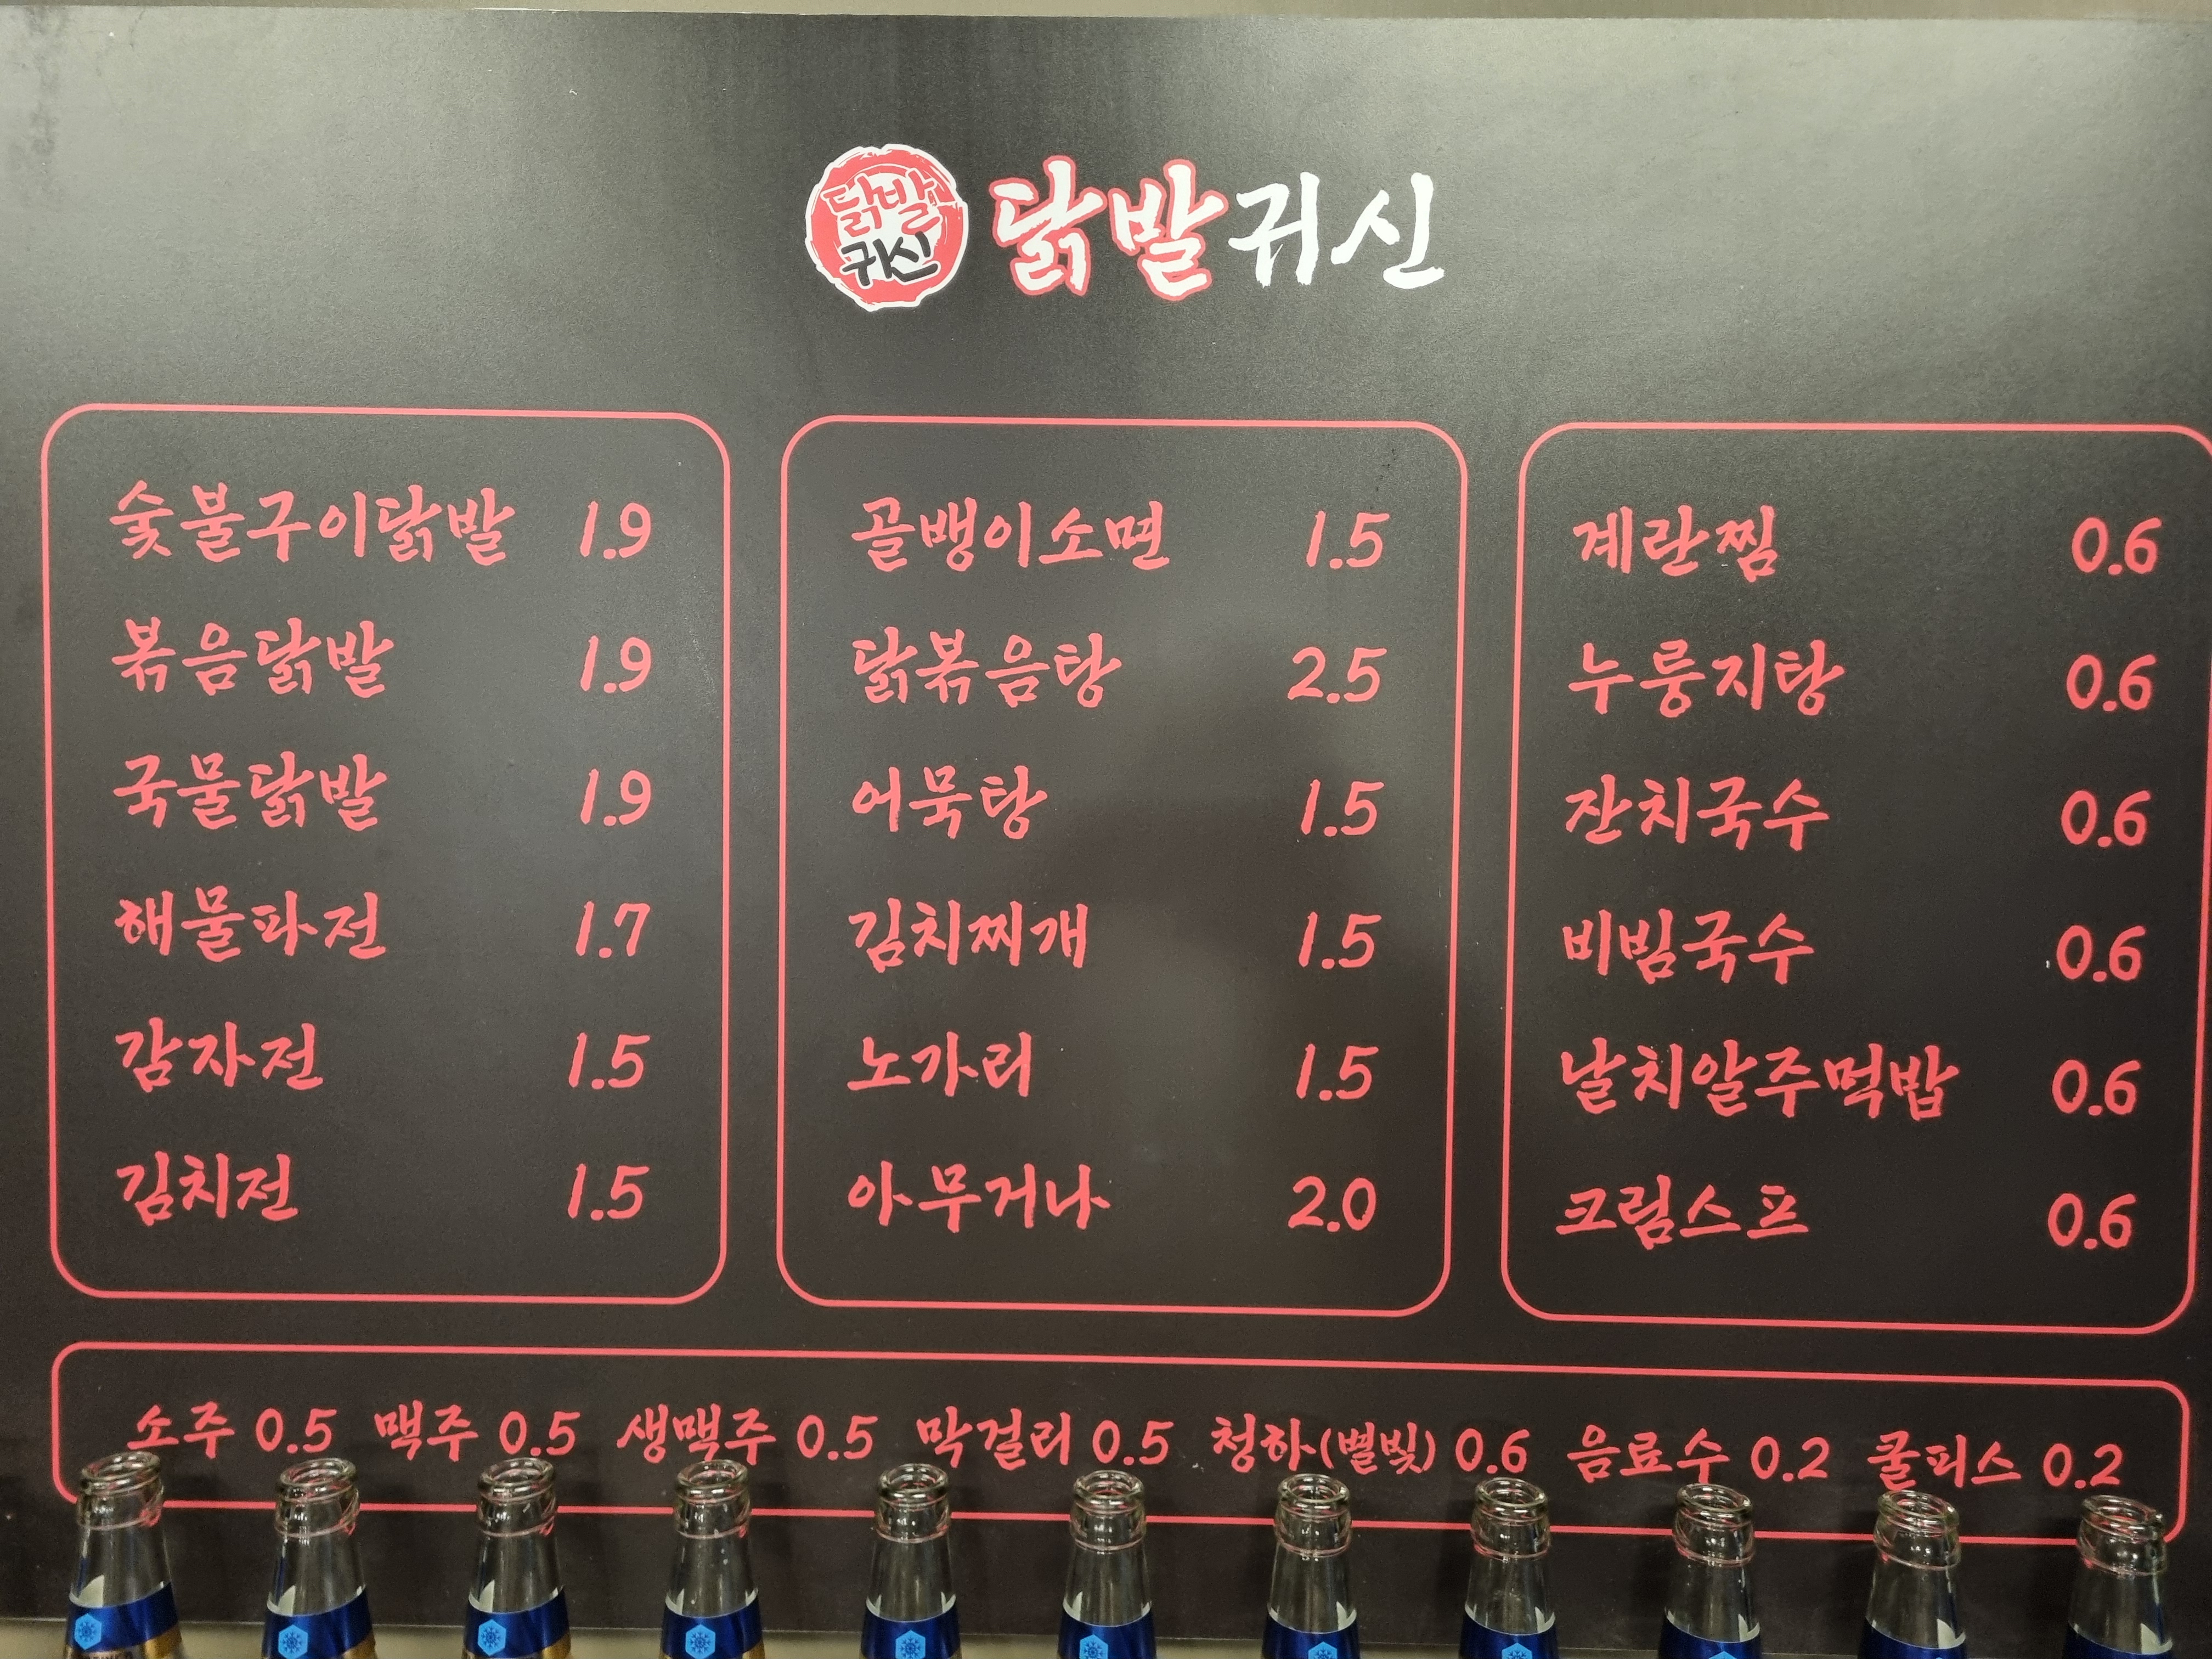 닭발
귀신
닭발귀신
숯불구이닭발 1.9
볶음닭발 1.9
국물닭발 1.9
해물파전 1.7
감자전 1.5
김치전 1.5
골뱅이소면 1.5
닭볶음탕 2.5
어묵탕 1.5
김치찌개 1.5
노가리 1.5
아무거나 2.0
계란찜 0.6
누룽지탕 0.6
잔치국수 0.6
비빔국수 0.6
날치알주먹밥 0.6
크림스프 0.6
소주 0.5 맥주 0.5 생맥주 0.5 막걸리 0.5 청하(별빛) 0.6 음료수 0.2 쿨피스 0.2